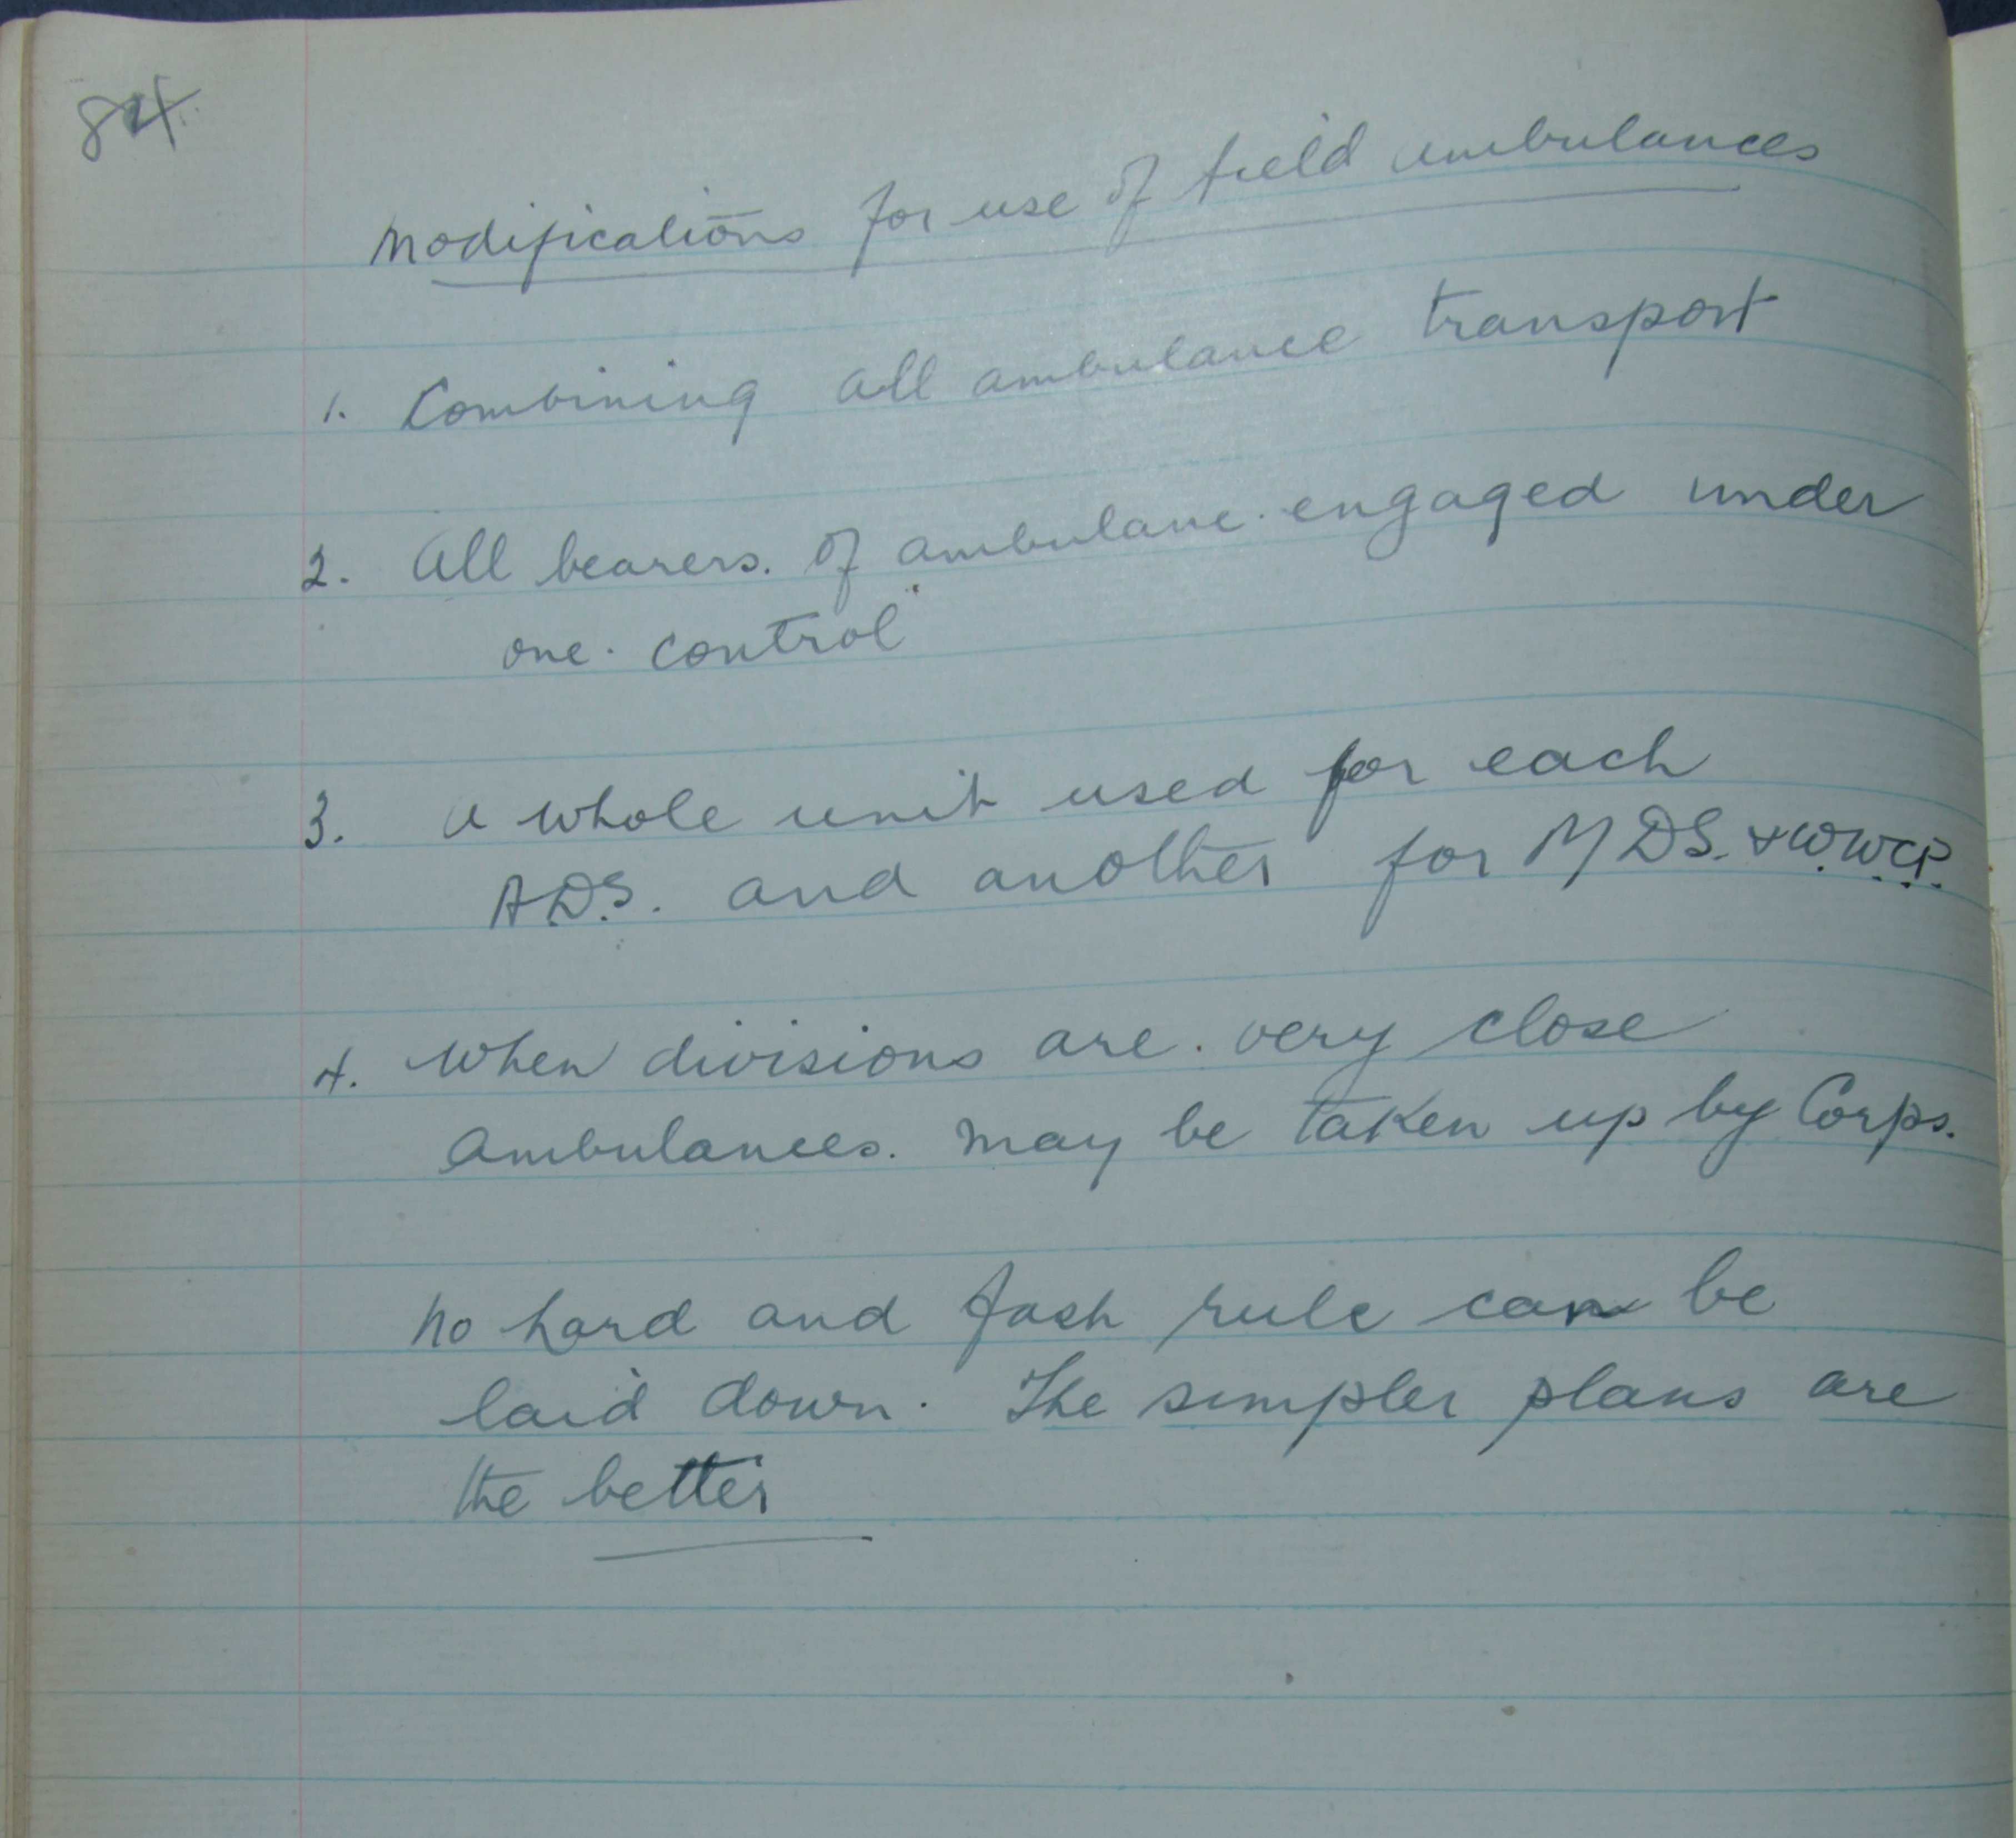 84
Modifications for use of field ambulances
1. Combining all ambulance transport
2. All bearers. of ambulance engaged under
one. control
3. A whole unit used for each
A.D.S. and another for MDS. + W.W.C.P.
4. When divisions are. very close
Ambulances. may be taken up by Corps.
No hard and fash rule can be
laid down. The simpler plans are
the better